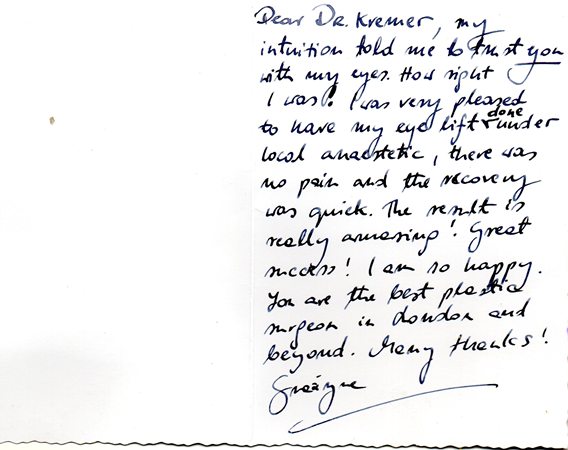 Dear Dr. Kremer, my
intuition told me to trust you
with my eyes. How right
I was! I was very pleased
to have my eye lift done under
local anaestetic, there was
no pain and the recovery
was quick. The result is
really amazing! Great
success! I am so happy.
You are the best plastic
surgeon in London and
beyond. Many thanks!
Gráinne